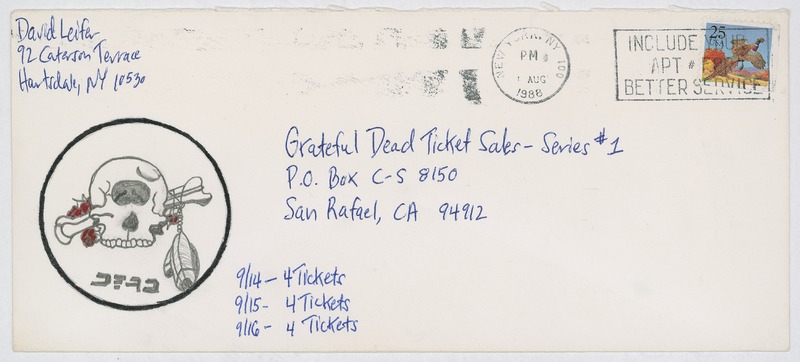 David Leifer
92 Caterson Terrace
Hartsdale, NY 10530
NEW YORK, NY 100
PM
1 AUG
1988
INCLUDE YOUR
APT #
BETTER SERVICE
25
Grateful Dead Ticket Sales - Series #1
P.O. Box C-S 8150
San Rafael, CA 94912
9/14 - 4 Tickets
9/15 - 4 Tickets
9/16 - 4 Tickets